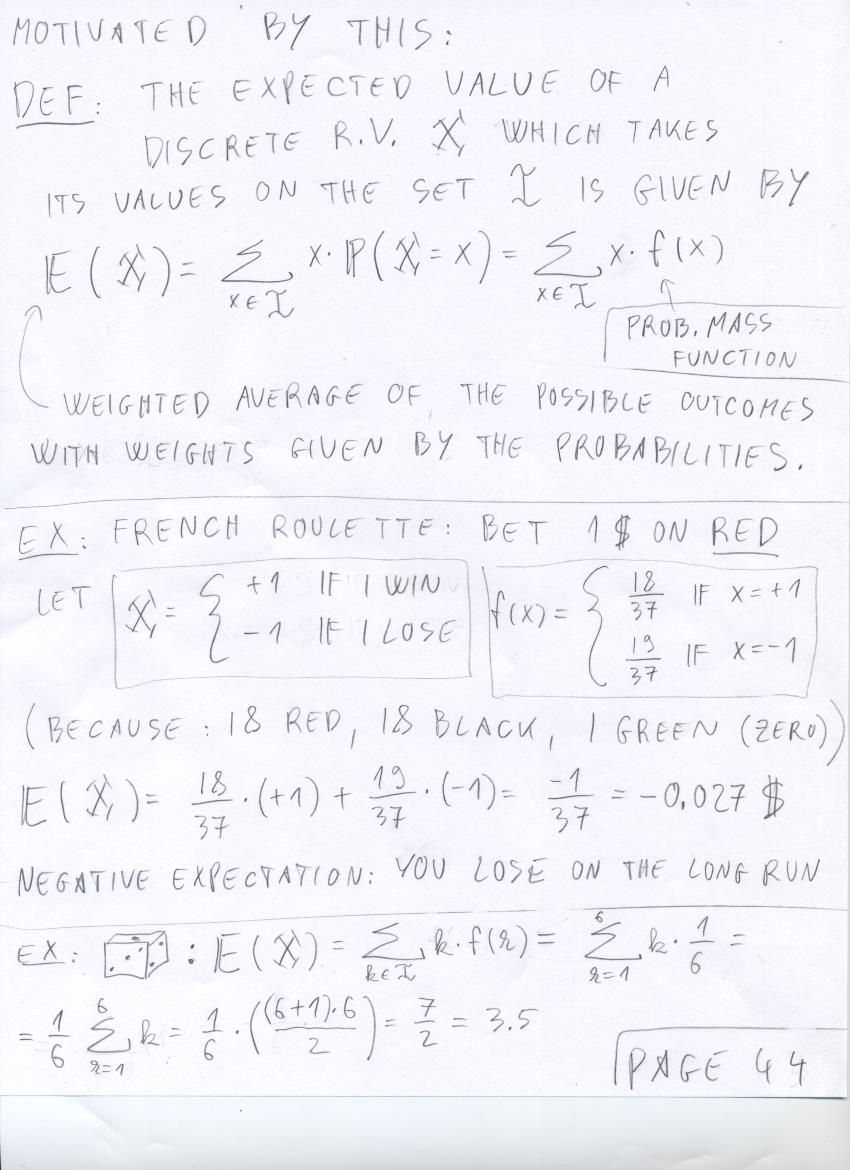 MOTIVATED BY THIS:
DEF: THE EXPECTED VALUE OF A
DISCRETE R.V. X WHICH TAKES
ITS VALUES ON THE SET I IS GIVEN BY
E(X) = ∑_{x∈I} x·P(X=x) = ∑_{x∈I} x·f(x)
PROB. MASS
FUNCTION
WEIGHTED AVERAGE OF THE POSSIBLE OUTCOMES
WITH WEIGHTS GIVEN BY THE PROBABILITIES.
EX: FRENCH ROULETTE: BET 1$ ON RED
LET X = { +1 IF I WIN
-1 IF I LOSE
f(x) = { 18/37 IF x=+1
19/37 IF x=-1
(BECAUSE: 18 RED, 18 BLACK, 1 GREEN (ZERO))
E(X) = 18/37·(+1) + 19/37·(-1) = -1/37 = -0,027 $
NEGATIVE EXPECTATION: YOU LOSE ON THE LONG RUN
EX: : E(X) = ∑_{k∈I} k·f(k) = ∑_{k=1}^{6} k·1/6 =
= 1/6 ∑_{k=1}^{6} k = 1/6·((6+1)·6/2) = 7/2 = 3.5
PAGE 44